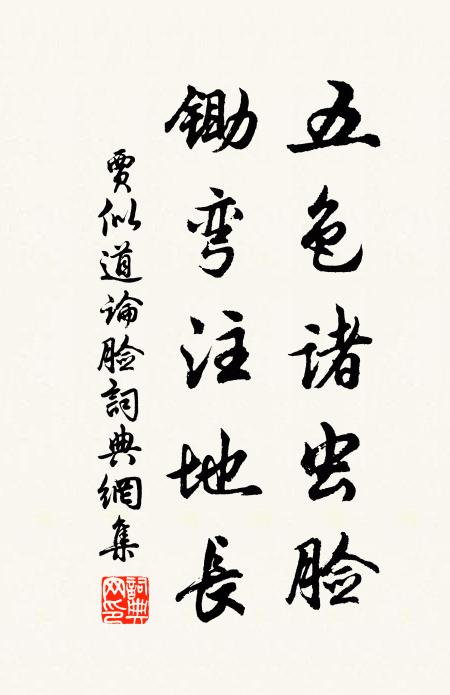 五色诸虫脸
锄弯注地長
賈似道論脸詞典網集
詞典网印